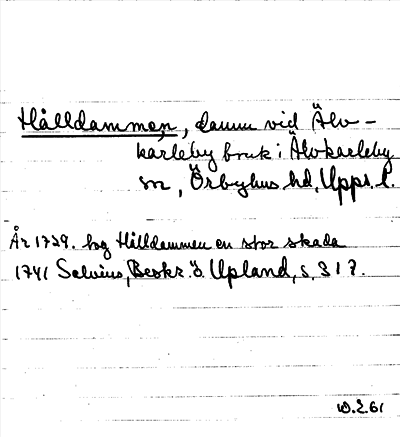 Hålldammen, damm vid Älv-
karleby bruk i Älvkarleby
sn, Örbyhus hd, Upps. l.
År 1729. tog Hålldammen en stor skada
1741 Selvius, Beskr. ö. Upland, s. 317.
W.E.61